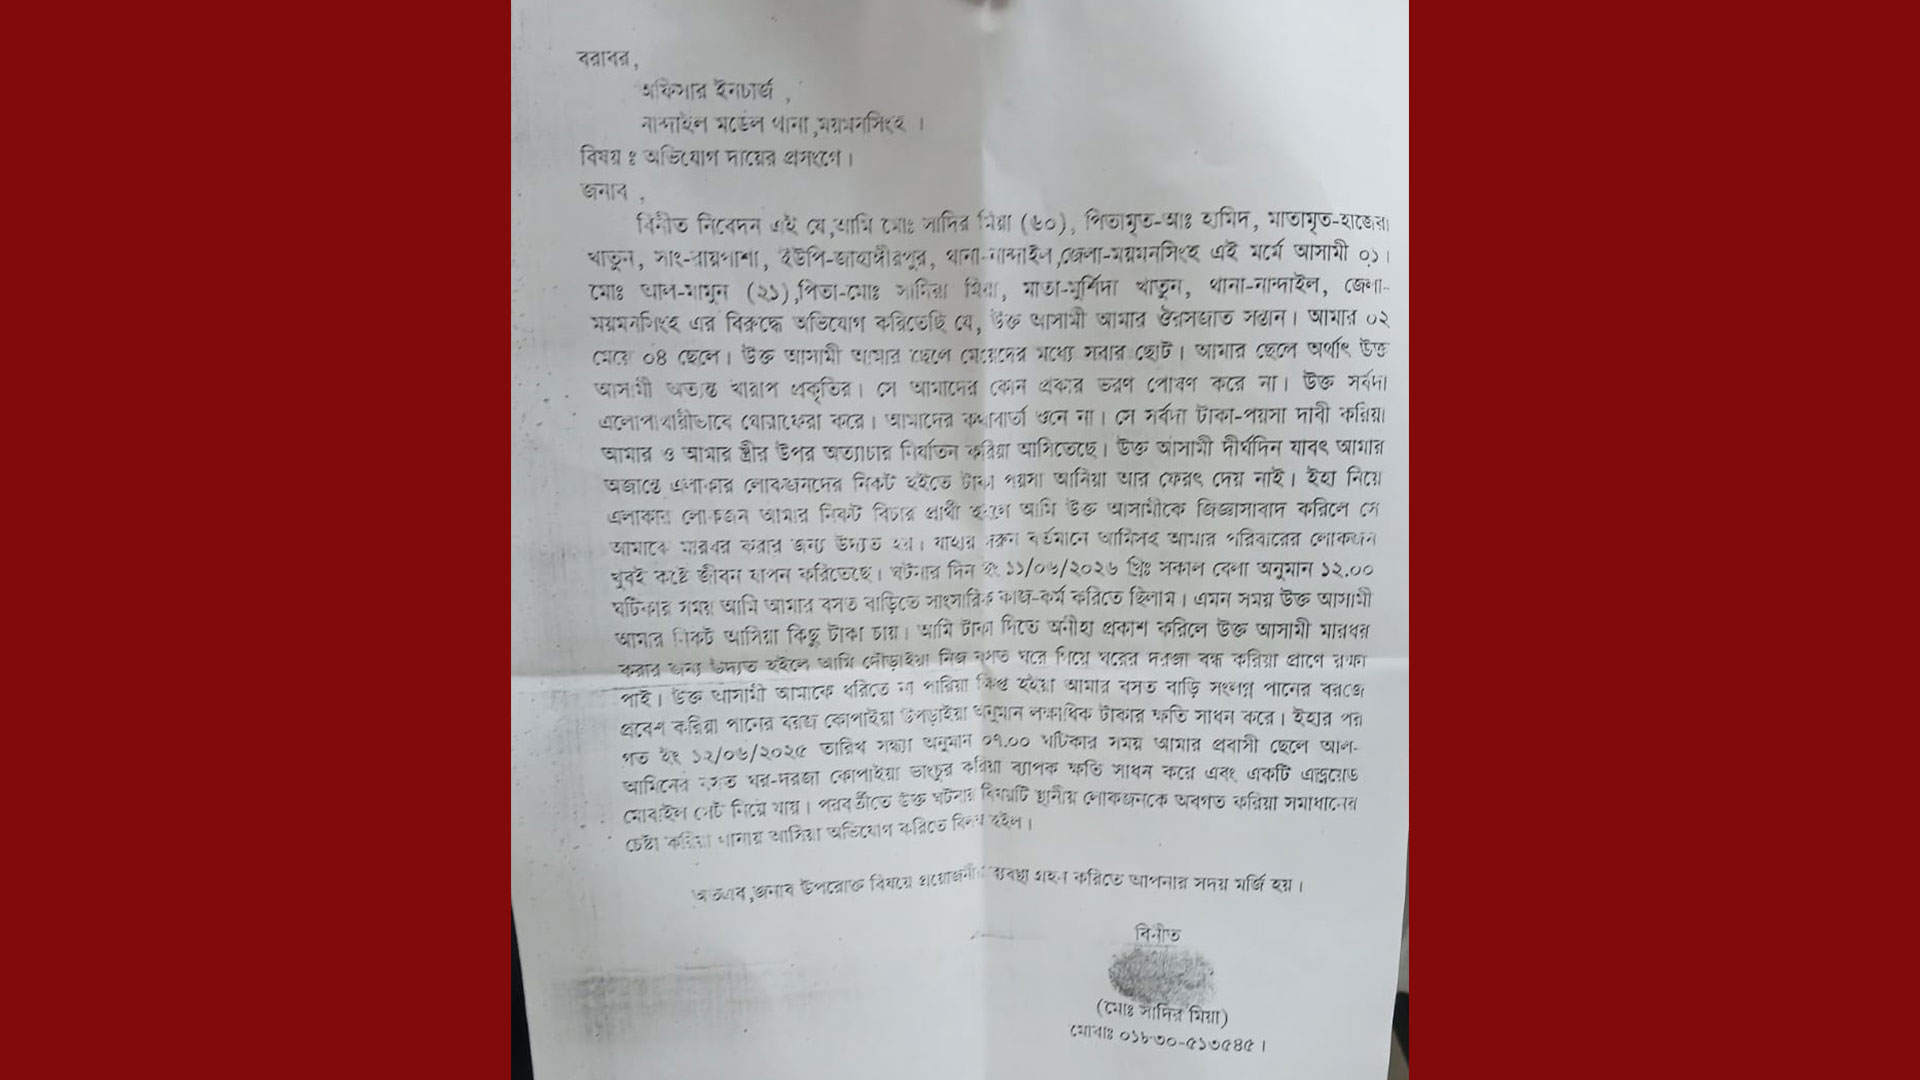 বরাবর,
অফিসার ইনচার্জ ,
নান্দাইল মডেল থানা,ময়মনসিংহ ।
বিষয় ঃ অভিযোগ দায়ের প্রসংগে।
জনাব ,
বিনীত নিবেদন এই যে,আমি মোঃ সাদির মিয়া (৬০), পিতামৃত-আঃ হামিদ, মাতামৃত-হাজেরা
খাতুন, সাং-রায়পাশা, ইউপি-জাহাঙ্গীরপুর, থানা-নান্দাইল,জেলা-ময়মনসিংহ এই মর্মে আসামী ০১।
মোঃ আল-মামুন (২১),পিতা-মোঃ সাদির মিয়া, মাতা-মুর্শিদা খাতুন, থানা-নান্দাইল, জেলা-
ময়মনসিংহ এর বিরুদ্ধে অভিযোগ করিতেছি যে, উক্ত আসামী আমার ঔরসজাত সন্তান। আমার ০২
মেয়ে ০৪ ছেলে। উক্ত আসামী আমার ছেলে মেয়েদের মধ্যে সবার ছোট। আমার ছেলে অর্থাৎ উক্ত
আসামী অত্যন্ত খারাপ প্রকৃতির। সে আমাদের কোন প্রকার ভরণ পোষণ করে না। উক্ত সর্বদা
এলোপাথারীভাবে ঘোরাফেরা করে। আমাদের কথাবার্তা শুনে না। সে সর্বদা টাকা-পয়সা দাবী করিয়া
আমার ও আমার স্ত্রীর উপর অত্যাচার নির্যাতন করিয়া আসিতেছে। উক্ত আসামী দীর্ঘদিন যাবৎ আমার
অজান্তে এলাকার লোকজনদের নিকট হইতে টাকা পয়সা আনিয়া আর ফেরৎ দেয় নাই। ইহা নিয়ে
এলাকার লোকজন আমার নিকট বিচার প্রার্থী হইলে আমি উক্ত আসামীকে জিজ্ঞাসাবাদ করিলে সে
আমাকে মারধর করার জন্য উদ্যত হয়। যাহার দরুন বর্তমানে আমিসহ আমার পরিবারের লোকজন
খুবই কষ্টে জীবন যাপন করিতেছে। ঘটনার দিন ইং ১১/০৬/২০২৬ খ্রিঃ সকাল বেলা অনুমান ১২.০০
ঘটিকার সময় আমি আমার বসত বাড়িতে সাংসারিক কাজ-কর্ম করিতে ছিলাম। এমন সময় উক্ত আসামী
আমার নিকট আসিয়া কিছু টাকা চায়। আমি টাকা দিতে অনীহা প্রকাশ করিলে উক্ত আসামী মারধর
করার জন্য উদ্যত হইলে আমি দৌড়াইয়া নিজ বসত ঘরে গিয়ে ঘরের দরজা বন্ধ করিয়া প্রাণে রক্ষা
পাই। উক্ত আসামী আমাকে ধরিতে না পারিয়া ক্ষিপ্ত হইয়া আমার বসত বাড়ি সংলগ্ন পানের বরজে
প্রবেশ করিয়া পানের বরজ কোপাইয়া উপড়াইয়া অনুমান লক্ষাধিক টাকার ক্ষতি সাধন করে। ইহার পর
গত ইং ১২/০৬/২০২৫ তারিখ সন্ধ্যা অনুমান ০৭.০০ ঘটিকার সময় আমার প্রবাসী ছেলে আল-
আমিনের বসত ঘর-দরজা কোপাইয়া ভাংচুর করিয়া ব্যাপক ক্ষতি সাধন করে এবং একটি এন্ড্রয়েড
মোবাইল সেট নিয়ে যায়। পরবর্তীতে উক্ত ঘটনার বিষয়টি স্থানীয় লোকজনকে অবগত করিয়া সমাধানের
চেষ্টা করিয়া থানায় আসিয়া অভিযোগ করিতে বিলম্ব হইল।
অতএব,জনাব উপরোক্ত বিষয়ে প্রয়োজনীয় ব্যবস্থা গ্রহন করিতে আপনার সদয় মর্জি হয়।
বিনীত
(মোঃ সাদির মিয়া)
মোবাঃ ০১৮৩০-৫১৩৫৪৫।